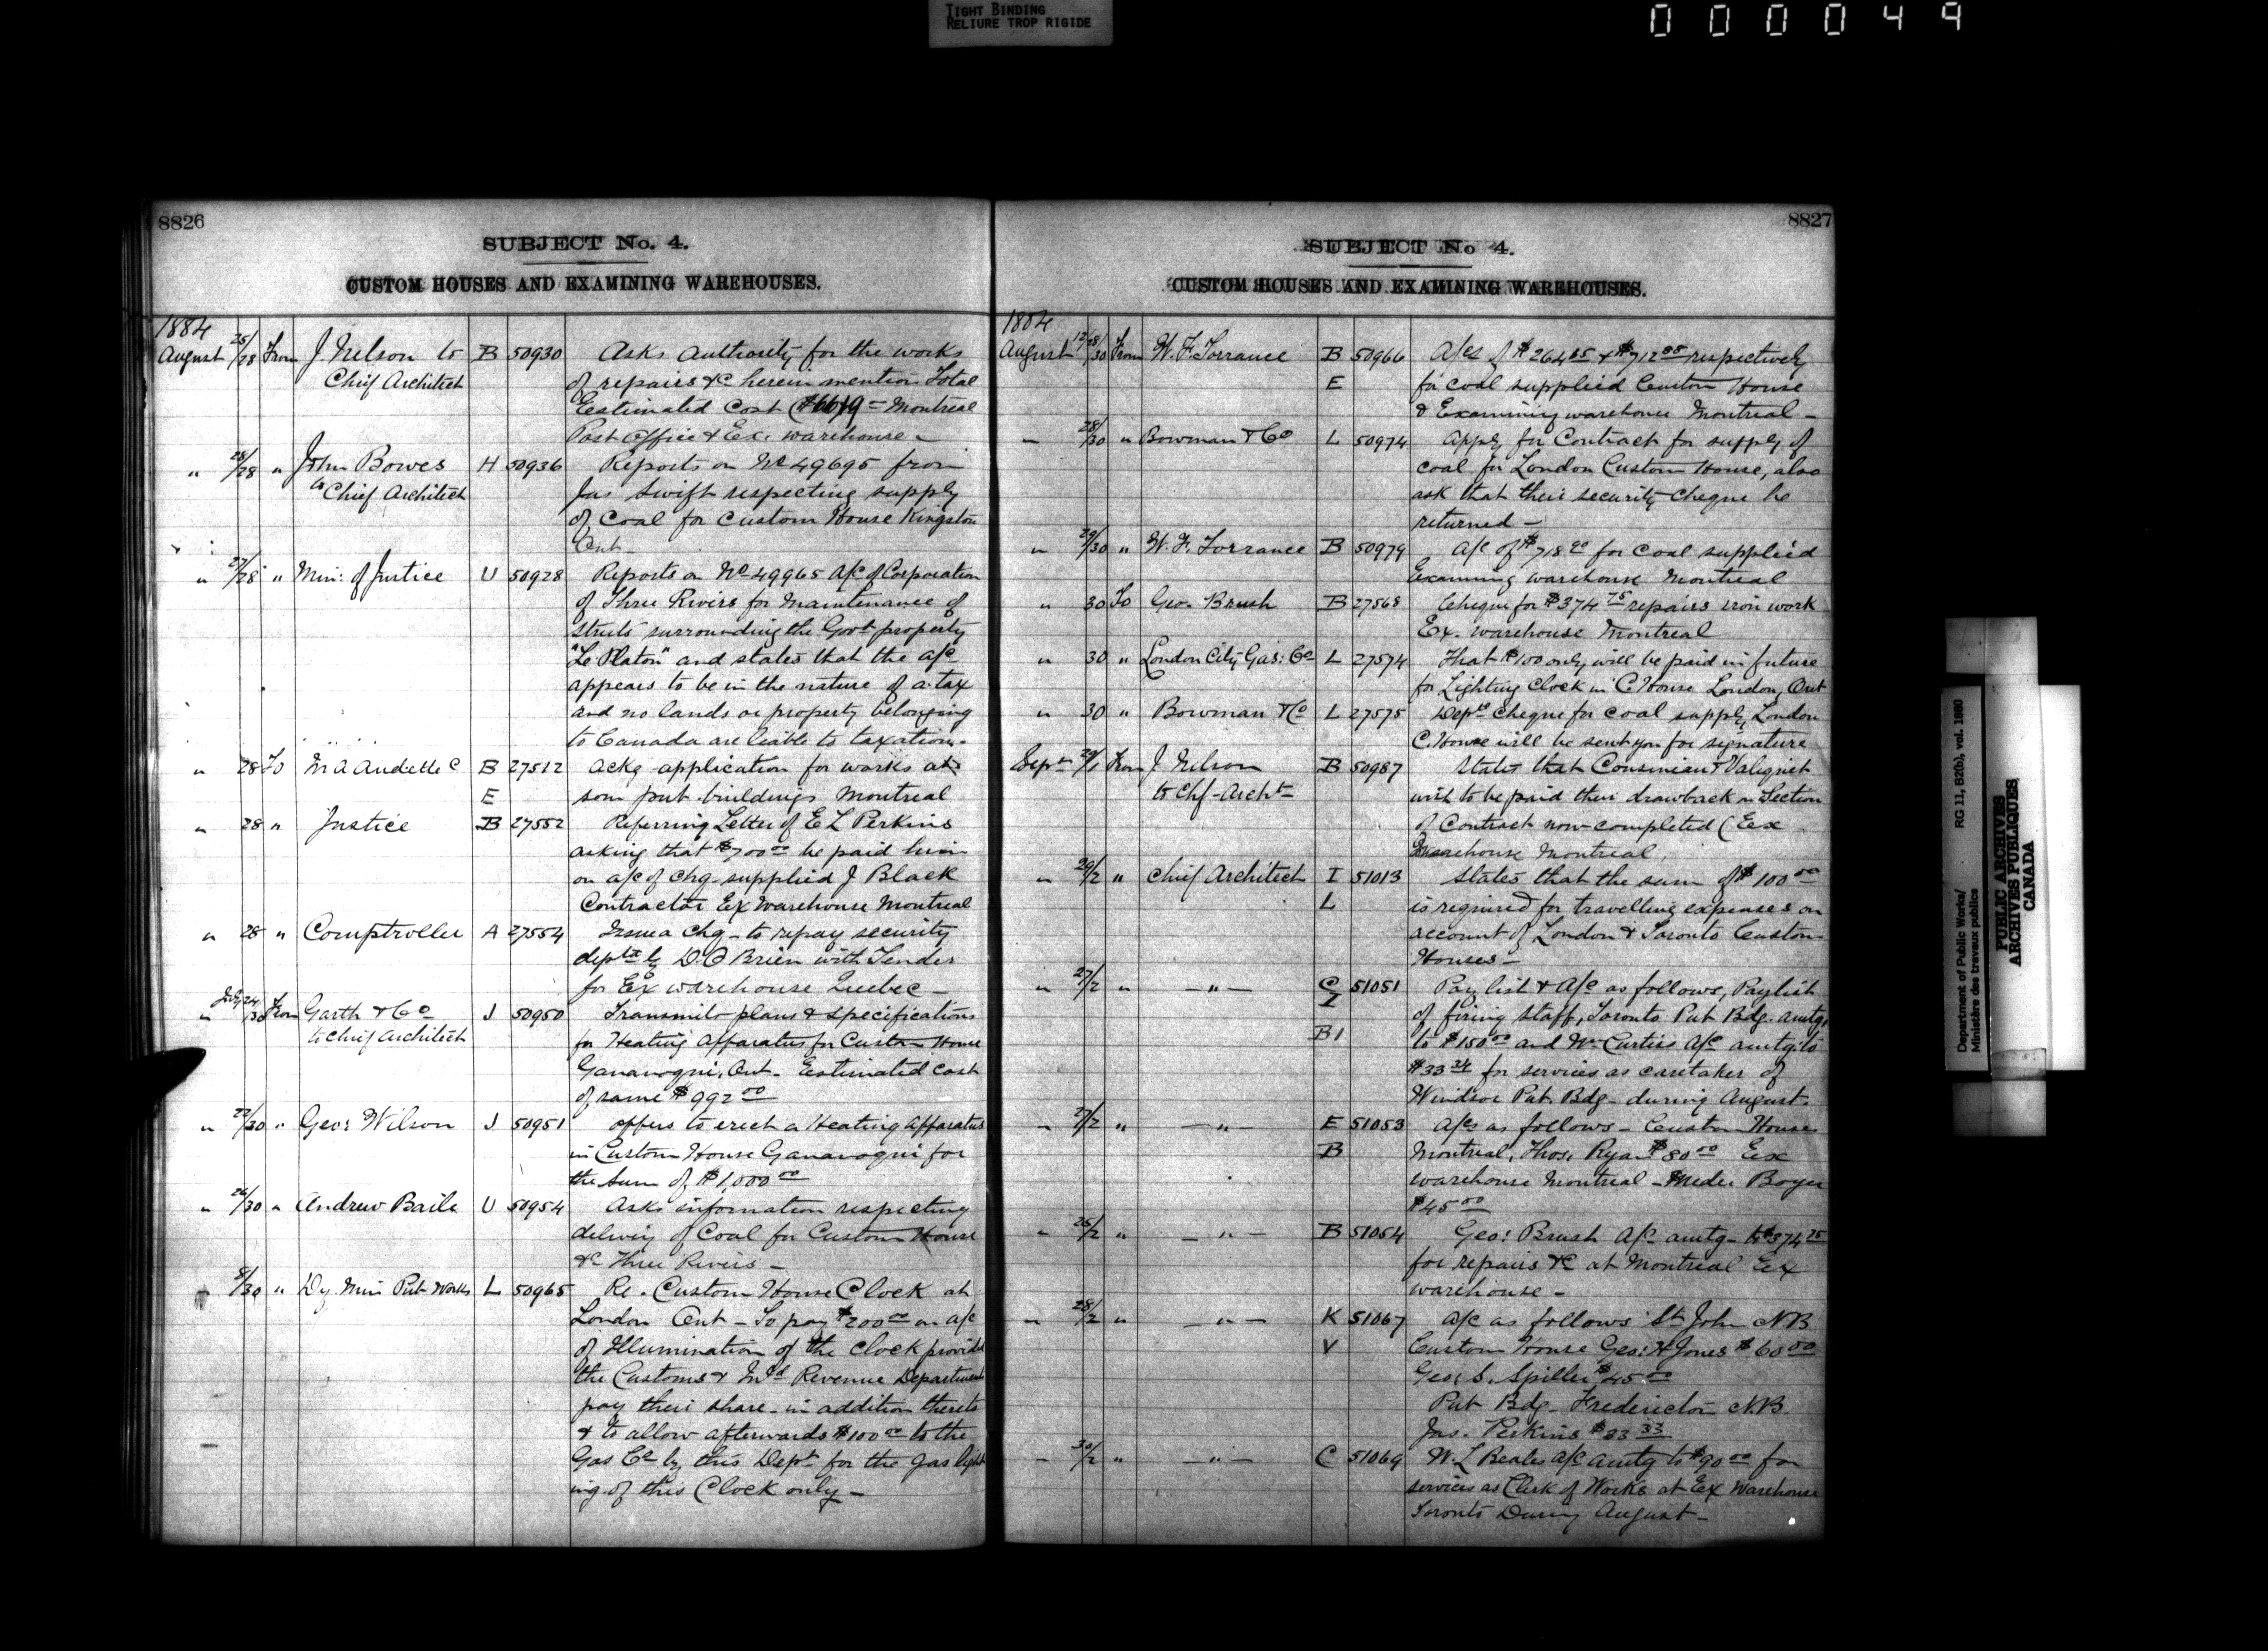 TIGHT BINDING
RELIURE TROP RIGIDE
000049
8826
SUBJECT No. 4.
CUSTOM HOUSES AND EXAMINING WAREHOUSES.
1884
August 25/28 From J. Nelson to B 50930 Asks Authority for the works
Chief Architect of repairs &c herein mention Total
Eestimated Cost Montreal
Post Office & Ex. warehouse
" 26/28 " John Bowes H 50936 Reports on No 49695 from
to Chief Architect Jas Swift respecting supply
of Coal for Custom House Kingston
Ont -
" 27/28 " Min: of Justice U 50928 Reports on No 49965 A/c of Corporation
of Three Rivers for Maintenance of
streets surrounding the Govt property
"Le Platon" and states that the a/c
appears to be in the nature of a tax
and no lands or property belonging
to Canada are liable to taxation -
" 28 To B 27512 Ackg application for works at
E som pub. buildings Montreal
" 28 " Justice B 27552 Referring Letter of E L Perkins
asking that $700 00 be paid him
on a/c of chq supplied J Black
Contractor Ex Warehouse Montreal
" 28 " Comptroller A 27554 chq - to repay security
by D. O Brien with Tender
for Ex warehouse Quebec -
July 24/30 From Garth & Co J 50950 Transmits plans & specifications
to Chief Architect for Heating Apparatus for Custom House
Gananoqui, Ont - Eestimated Cost
of same $992 00
" 22/30 " Geo: Wilson J 50951 offers to erect a Heating Apparatus
in Custom House Gananoqui for
the Sum of $1,000 00
" 26/30 " Andrew Baile U 50954 Asks information respecting
delivery of Coal for Custom House
&c Three Rivers -
8/30 " Dy. Min Pub Works L 50965 Re. Custom House Clock at
London Ont - To pay $200 00 on a/c
of Illumination of the Clock provided
the Customs & Inld Revenue Departments
pay their share in addition thereto
& to allow afterwards $100 00 to the
Gas Co by this Dept for the gas light
ing of this Clock only -
8827
SUBJECT No 4.
CUSTOM HOUSES AND EXAMINING WAREHOUSES.
1884
August From W. F. Torrance B 50966 A/cs of respectively
E for coal supplied Custom House
& Examining warehouse Montreal -
" 28/30 " Bowman & Co L 50974 Apply for Contract for supply of
coal for London Custom House, also
ask that their security cheque be
returned -
" 29/30 " W. F. Torrance B 50979 A/c of for coal supplied
Examining warehouse Montreal
" 30 To Geo. Brush B 27568 Cheque for $374 75 repairs iron work
Ex. warehouse Montreal
" 30 " London City Gas: Co L 27574 That $100 only will be paid in future
for Lighting Clock in C. House London, Ont
" 30 " Bowman & Co L 27575 cheque for coal supply London
C. House will be sent you for signature
Sept 29/1 From J. Nelson B 50987 States that Cousineau & Valiquet
to Chf- Archt wish to be paid their drawback on Section
of Contract now completed ( Eex
warehouse Montreal.
" 29/2 " Chief Architect I 51013 States that the sum of $100 00
L is required for travelling expenses on
account of London & Toronto Custom
Houses -
" 27/2 " - " - C 51051 Pay list & A/c as follows, Paylist
I of firing staff, Toronto Pub Bdg. amtg,
B1 to $150 00 and Wm Curtiss A/c amtg to
for services as caretaker of
Windsor Pub. Bdg - during August.
" 27/2 " - " - E 51053 A/cs as follows - Custom House
B Montreal, Thos. Ryan $80 00 Eex
warehouse Montreal - Boyer
$45 00
" 25/2 " - " - B 51054 Geo: Brush A/c amtg - to
for repairs &c at Montreal Eex
warehouse -
" 28/2 " - " - K 51067 A/c as follows St John N B
V Custom House Geo: H Jones $60 00
Geo: S. Spiller $45 00
Pub Bdg - Fredericton N.B.
Jas. Perkins $33 33
" 30/2 " - " - C 51069 W. L Beales a/c amtg to $90 00 for
services as Clerk of Works at Ex Warehouse
Toronto During August -
Department of Public Works/
Ministère des travaux publics
RG 11, 82(b), vol. 1880
PUBLIC ARCHIVES
ARCHIVES PUBLIQUES
CANADA